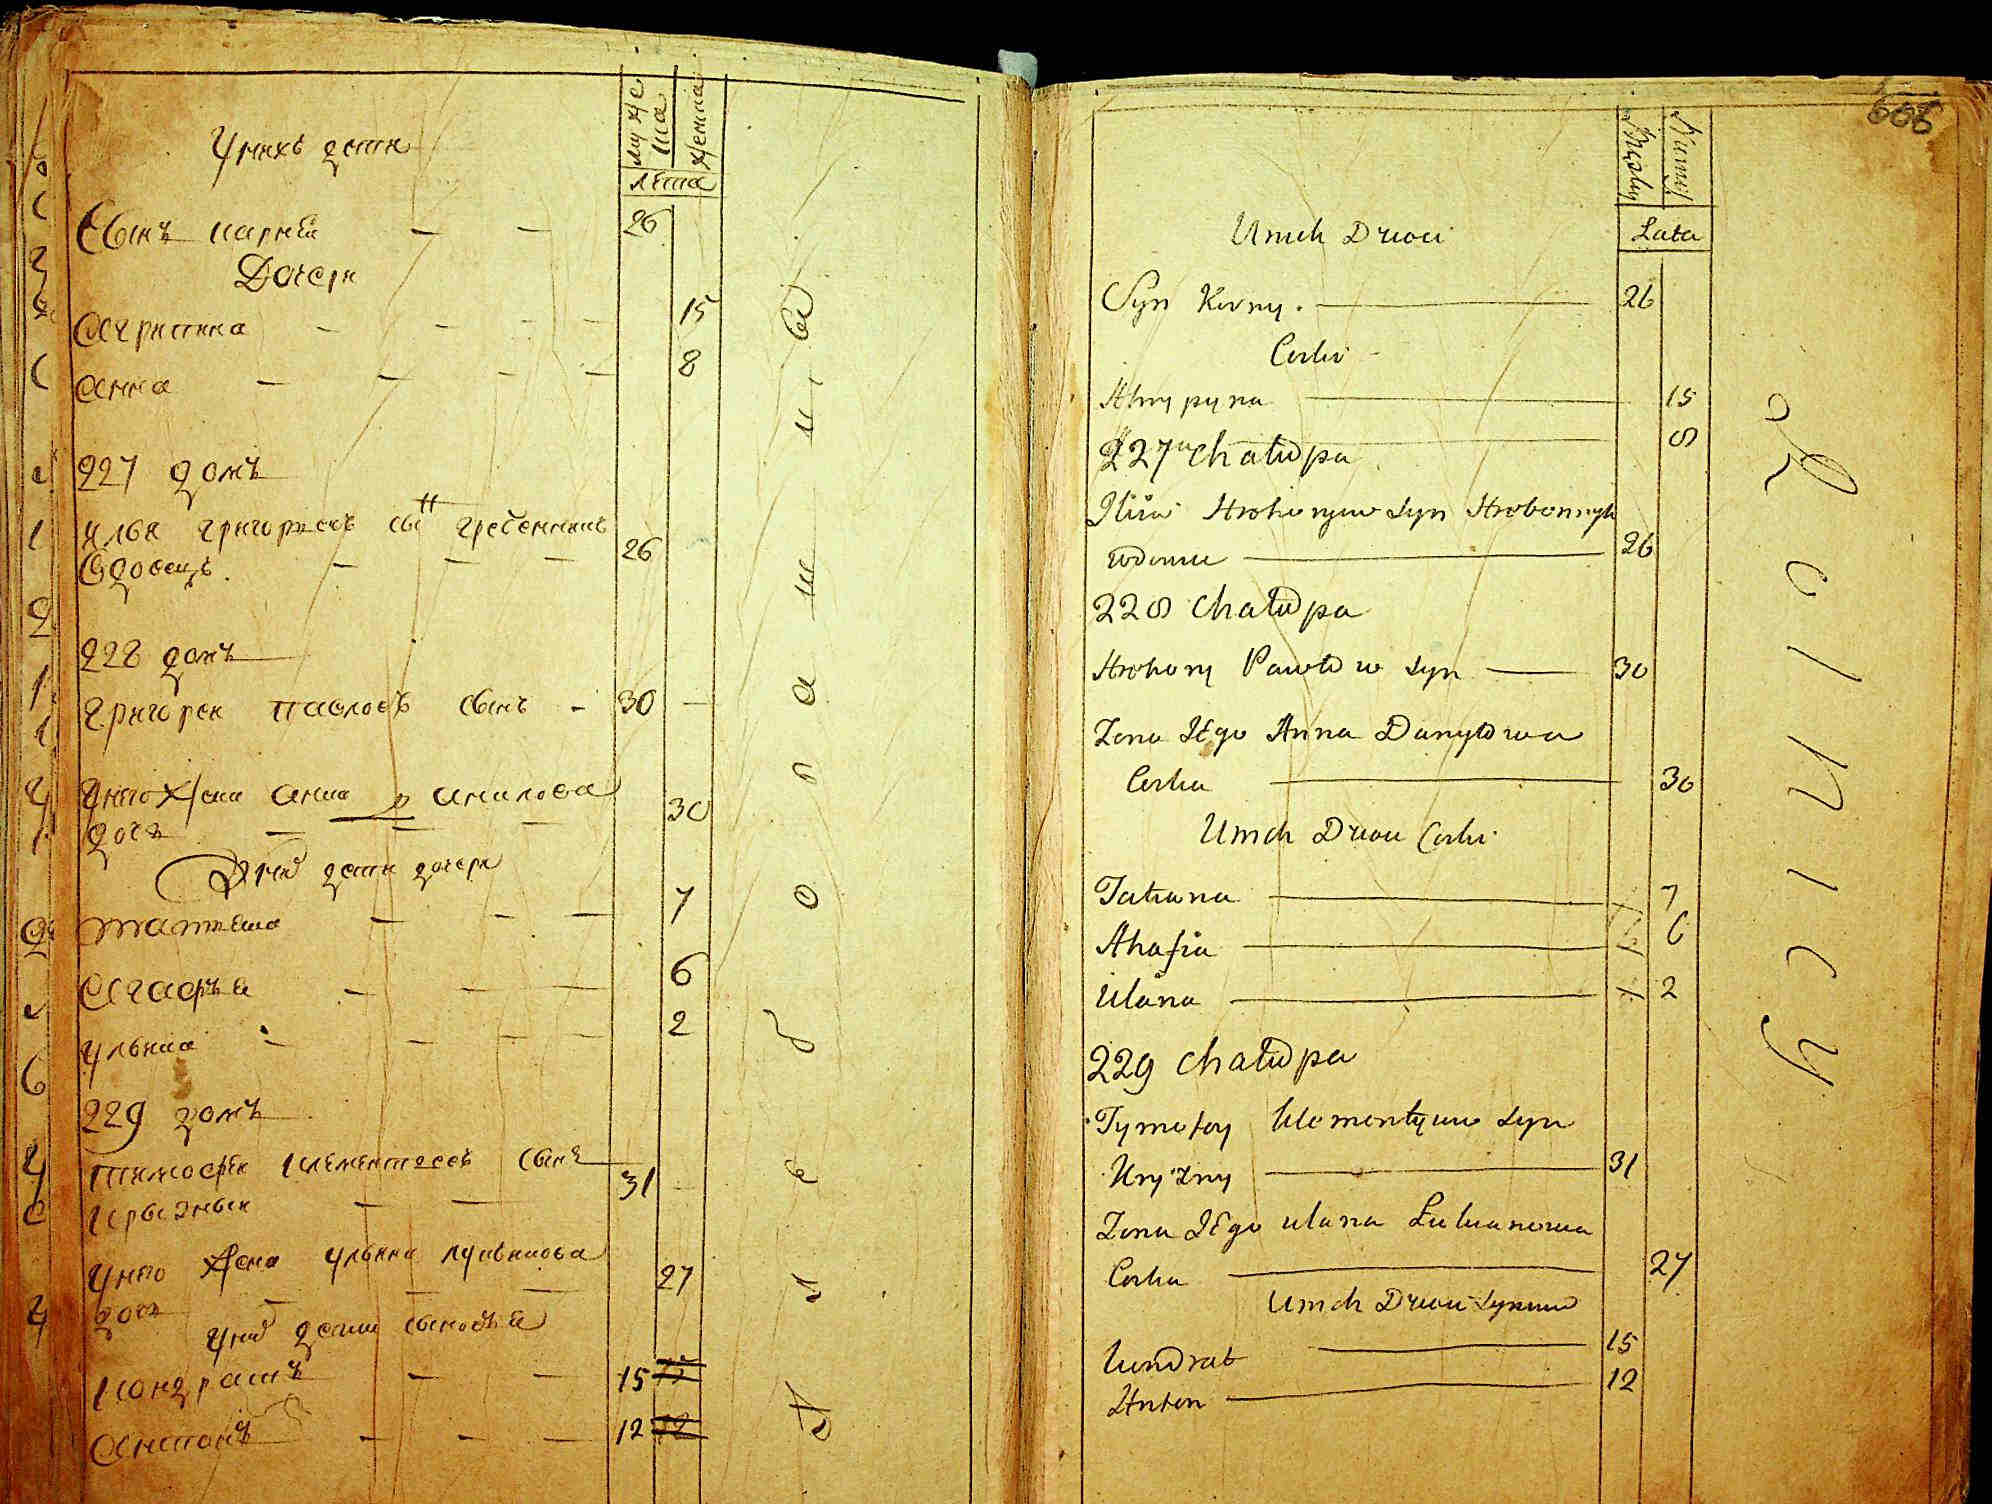 мужеска
женска
лета
У них дети
Сынъ Карнѣй 26
Дочери
Агрипина 15
Анна 8
227 домъ
Илья Григориевъ сы Гребенникъ
вдовецъ 26
228 домъ
Григорей Павловъ сынъ 30
У него жена Анна Данилова
дочь 30
У них дети дочери
Татиана 7
Агафѣя 6
Ульяна 2
229 домъ
Тимофей Клементовъ сынъ
Крызный 31
У него жена Ульяна Лукьянова
дочь 27
У них дети сыновья
Кондратъ 15
Антонъ 12
606
Męsky
Lata
U nich Dzieci
Syn Korny 26
Corki
Ahrypyna 15
8
227 Chałupa
Iliia Hrohoryiw syn Hrebennyk
wdowec 26
228 Chałupa
Hrehory Pawłow syn 30
Żona Jego Anna Danyłowa
Corka 30
U nich Dzieci Corki
Tatiana 7
Ahafia 6
Ulana 2
229 Chałupa
Tymofey Klementyiw syn
Kryżny 31
Żona Jego Ulana Lukianowa
Corka 27
U nich Dzieci synowie
Kondrat 15
Anton 12